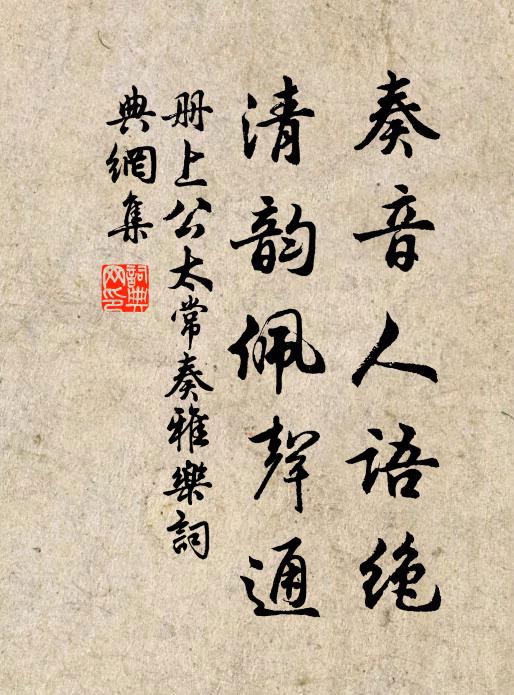 奏音人语绝
清韵佩聲通
册上公太常奏雅樂詞
典網集
詞典网印